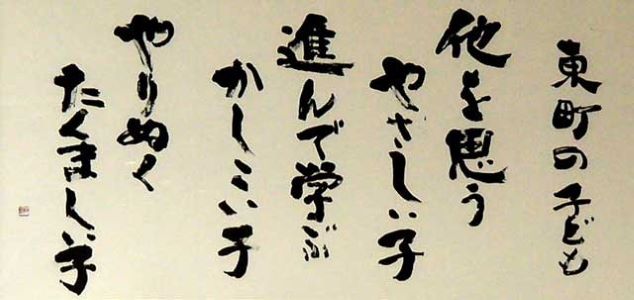 東町の子ども
他を思う
やさしい子
進んで学ぶ
かしこい子
やりぬく
たくましい子